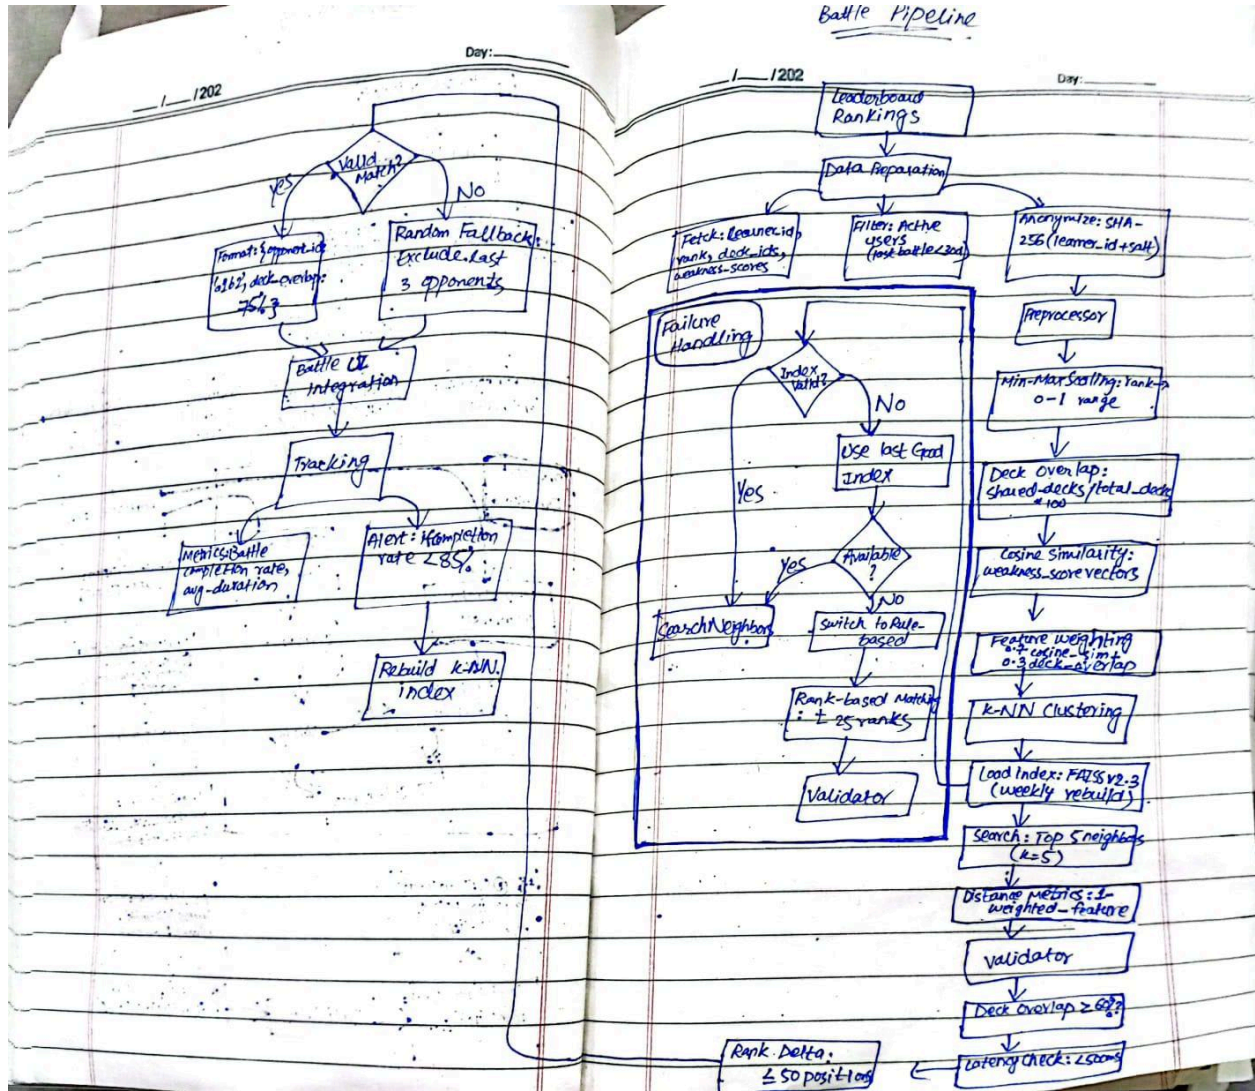 Battle Pipeline
Day:
__/__/202
Valid
Match?
Yes
No
Format: {opponent_id:
'a1b2', deck_overlap:
75%}
Random Fallback:
Exclude last
3 opponents
Battle UI
Integration
Tracking
Metrics: Battle
completion rate,
avg-duration
Alert: if completion
rate < 85%
Rebuild k-NN
index
__/__/202
Day:
Leaderboard
Rankings
Data Preparation
Fetch: learner_id,
rank, deck_ids,
weakness-scores
Filter: Active
users
(last battle<30d)
Anonymize: SHA-
256(learner_id+salt)
Preprocessor
Min-Max Scaling: rank→
0-1 range
Deck Overlap:
shared-decks/total_decks
*100
Cosine similarity:
weakness_score vectors
Feature weighting
0.7*cosine_sim+
0.3*deck_overlap
K-NN Clustering
Load Index: FAISS v2.3
(weekly rebuild)
Search: Top 5 neighbors
(k=5)
Distance Metrics: 1-
weighted_feature
Validator
Deck Overlap ≥ 60%?
Latency Check: <500ms
Rank Delta:
≤ 50 positions
Failure
Handling
Index
Valid?
No
Yes
Use last Good
Index
Available
?
Yes
No
Search Neighbors
Switch to Rule-
based
Rank-based Matching
: ± 25 ranks
Validator